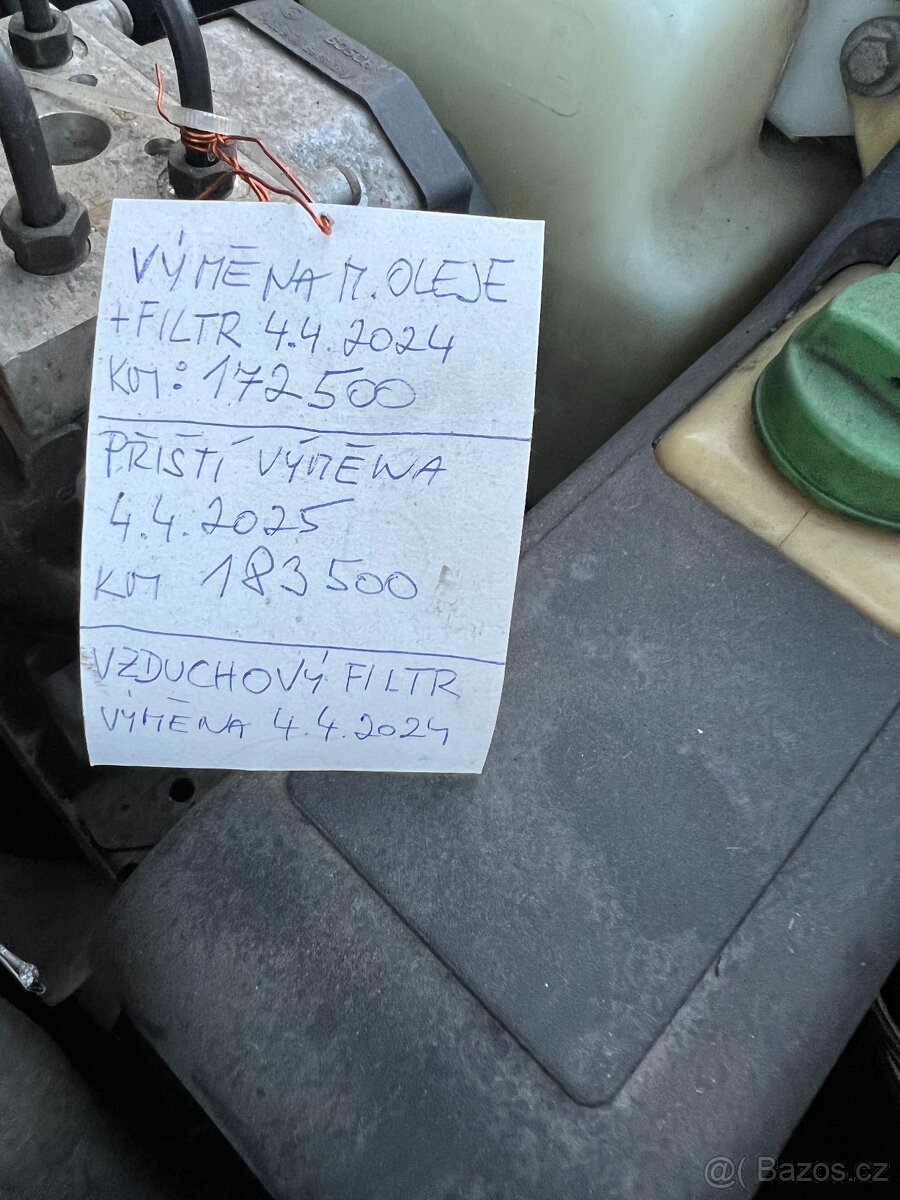 VÝMĚNA M. OLEJE
+FILTR 4.4.2024
KM: 172500
PŘÍŠTÍ VÝMĚNA
4.4.2025
KM 183500
VZDUCHOVÝ FILTR
VÝMĚNA 4.4.2024
@( Bazos.cz